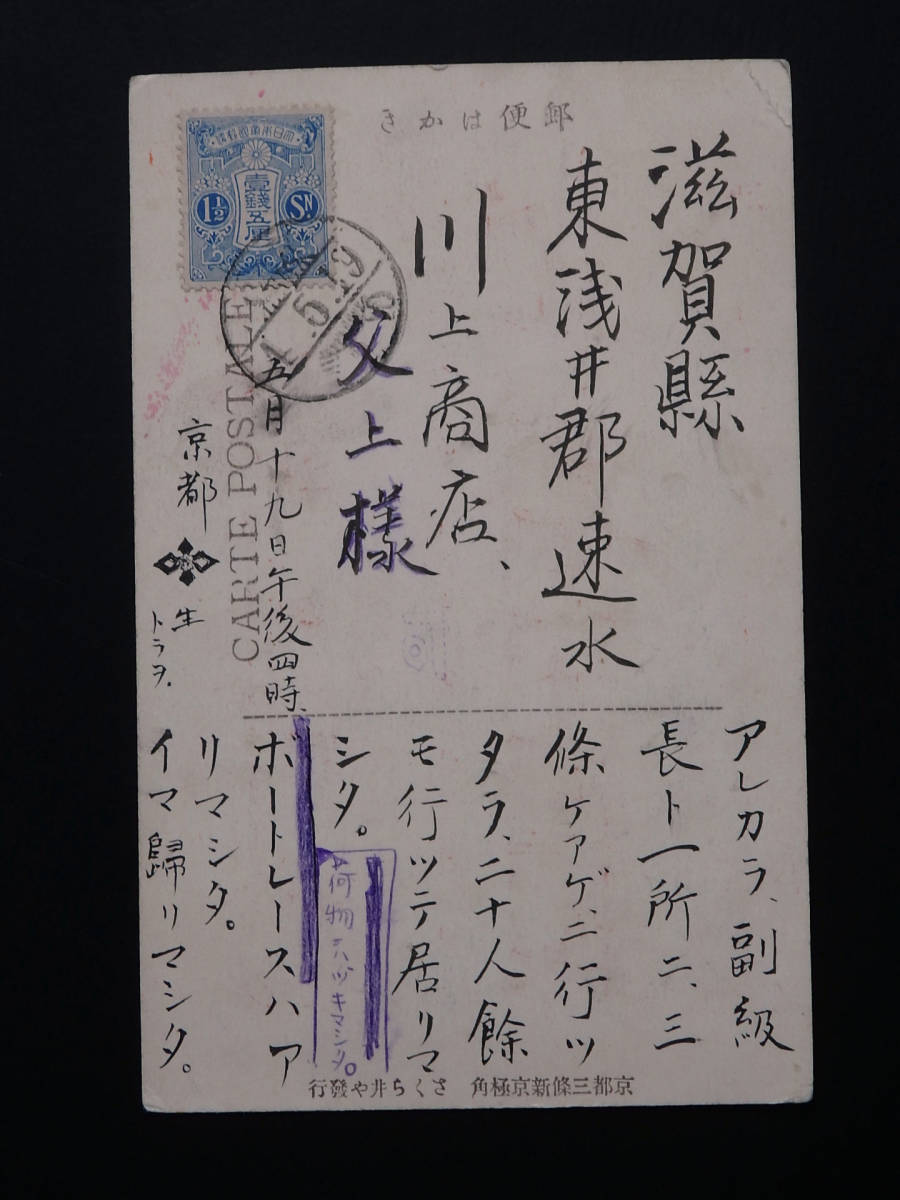 郵便はかき
大日本帝國郵便
壹錢五厘
1½ SN.
5.19
CARTE POSTALE
滋賀縣
東浅井郡速水
川上商店、
父上様
五月十九日午後四時、
京都
生
トラヲ.
アレカラ、副級
長ト一所ニ、三
條ケアゲ、ニ行ッ
タラ、二十人餘
モ行ッテ居リマ
シタ。
荷物ハツキマシタ。
ボートレースハア
リマシタ。
イマ歸リマシタ。
京都三條新京極角 さくら井や發行